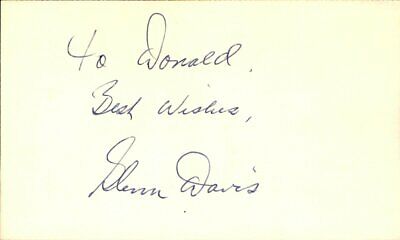 To Donald,
Best Wishes,
Glenn Davis